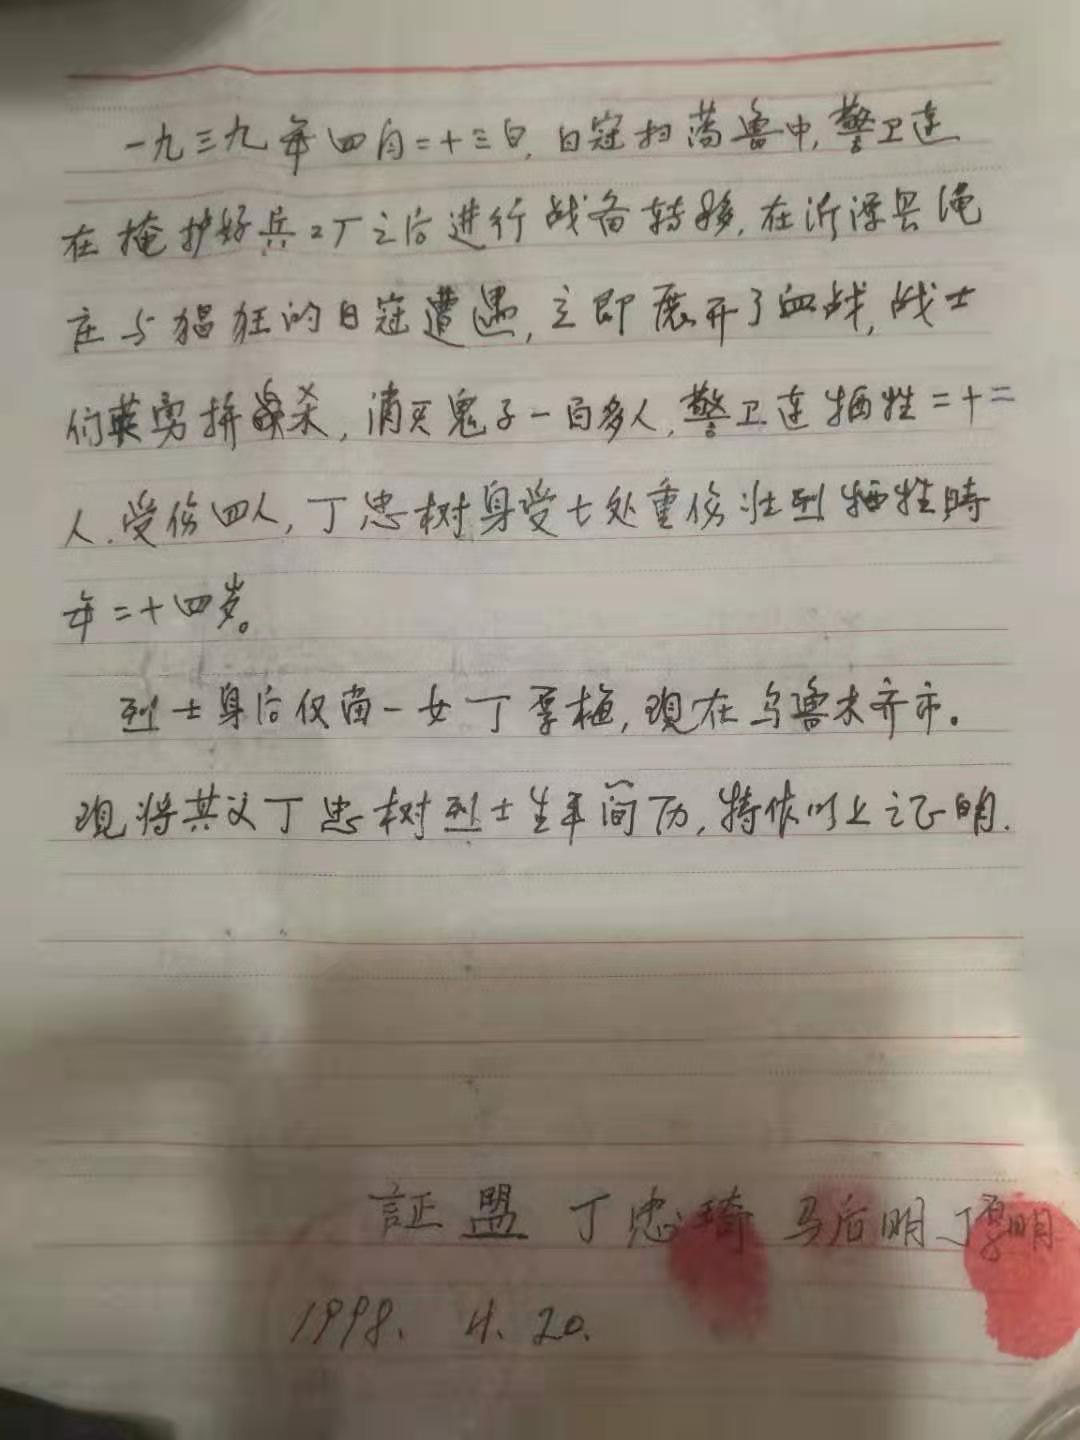 一九三九年四月二十三日,日寇扫荡鲁中,警卫连
在掩护好兵工厂之后进行战备转移,在沂源县
庄与猖狂的日寇遭遇,立即展开了血战,战士
们英勇拼杀,消灭鬼子一百多人,警卫连牺牲二十二
人.受伤四人,丁忠树身受七处重伤壮烈牺牲時
年二十四岁。
烈士身后仅留一女丁厚梅,现在乌鲁木齐市。
现将其父丁忠树烈士生年简历,特作以上证明.
証盟 丁忠琦 马后明 丁厚明
1998. 4. 20.